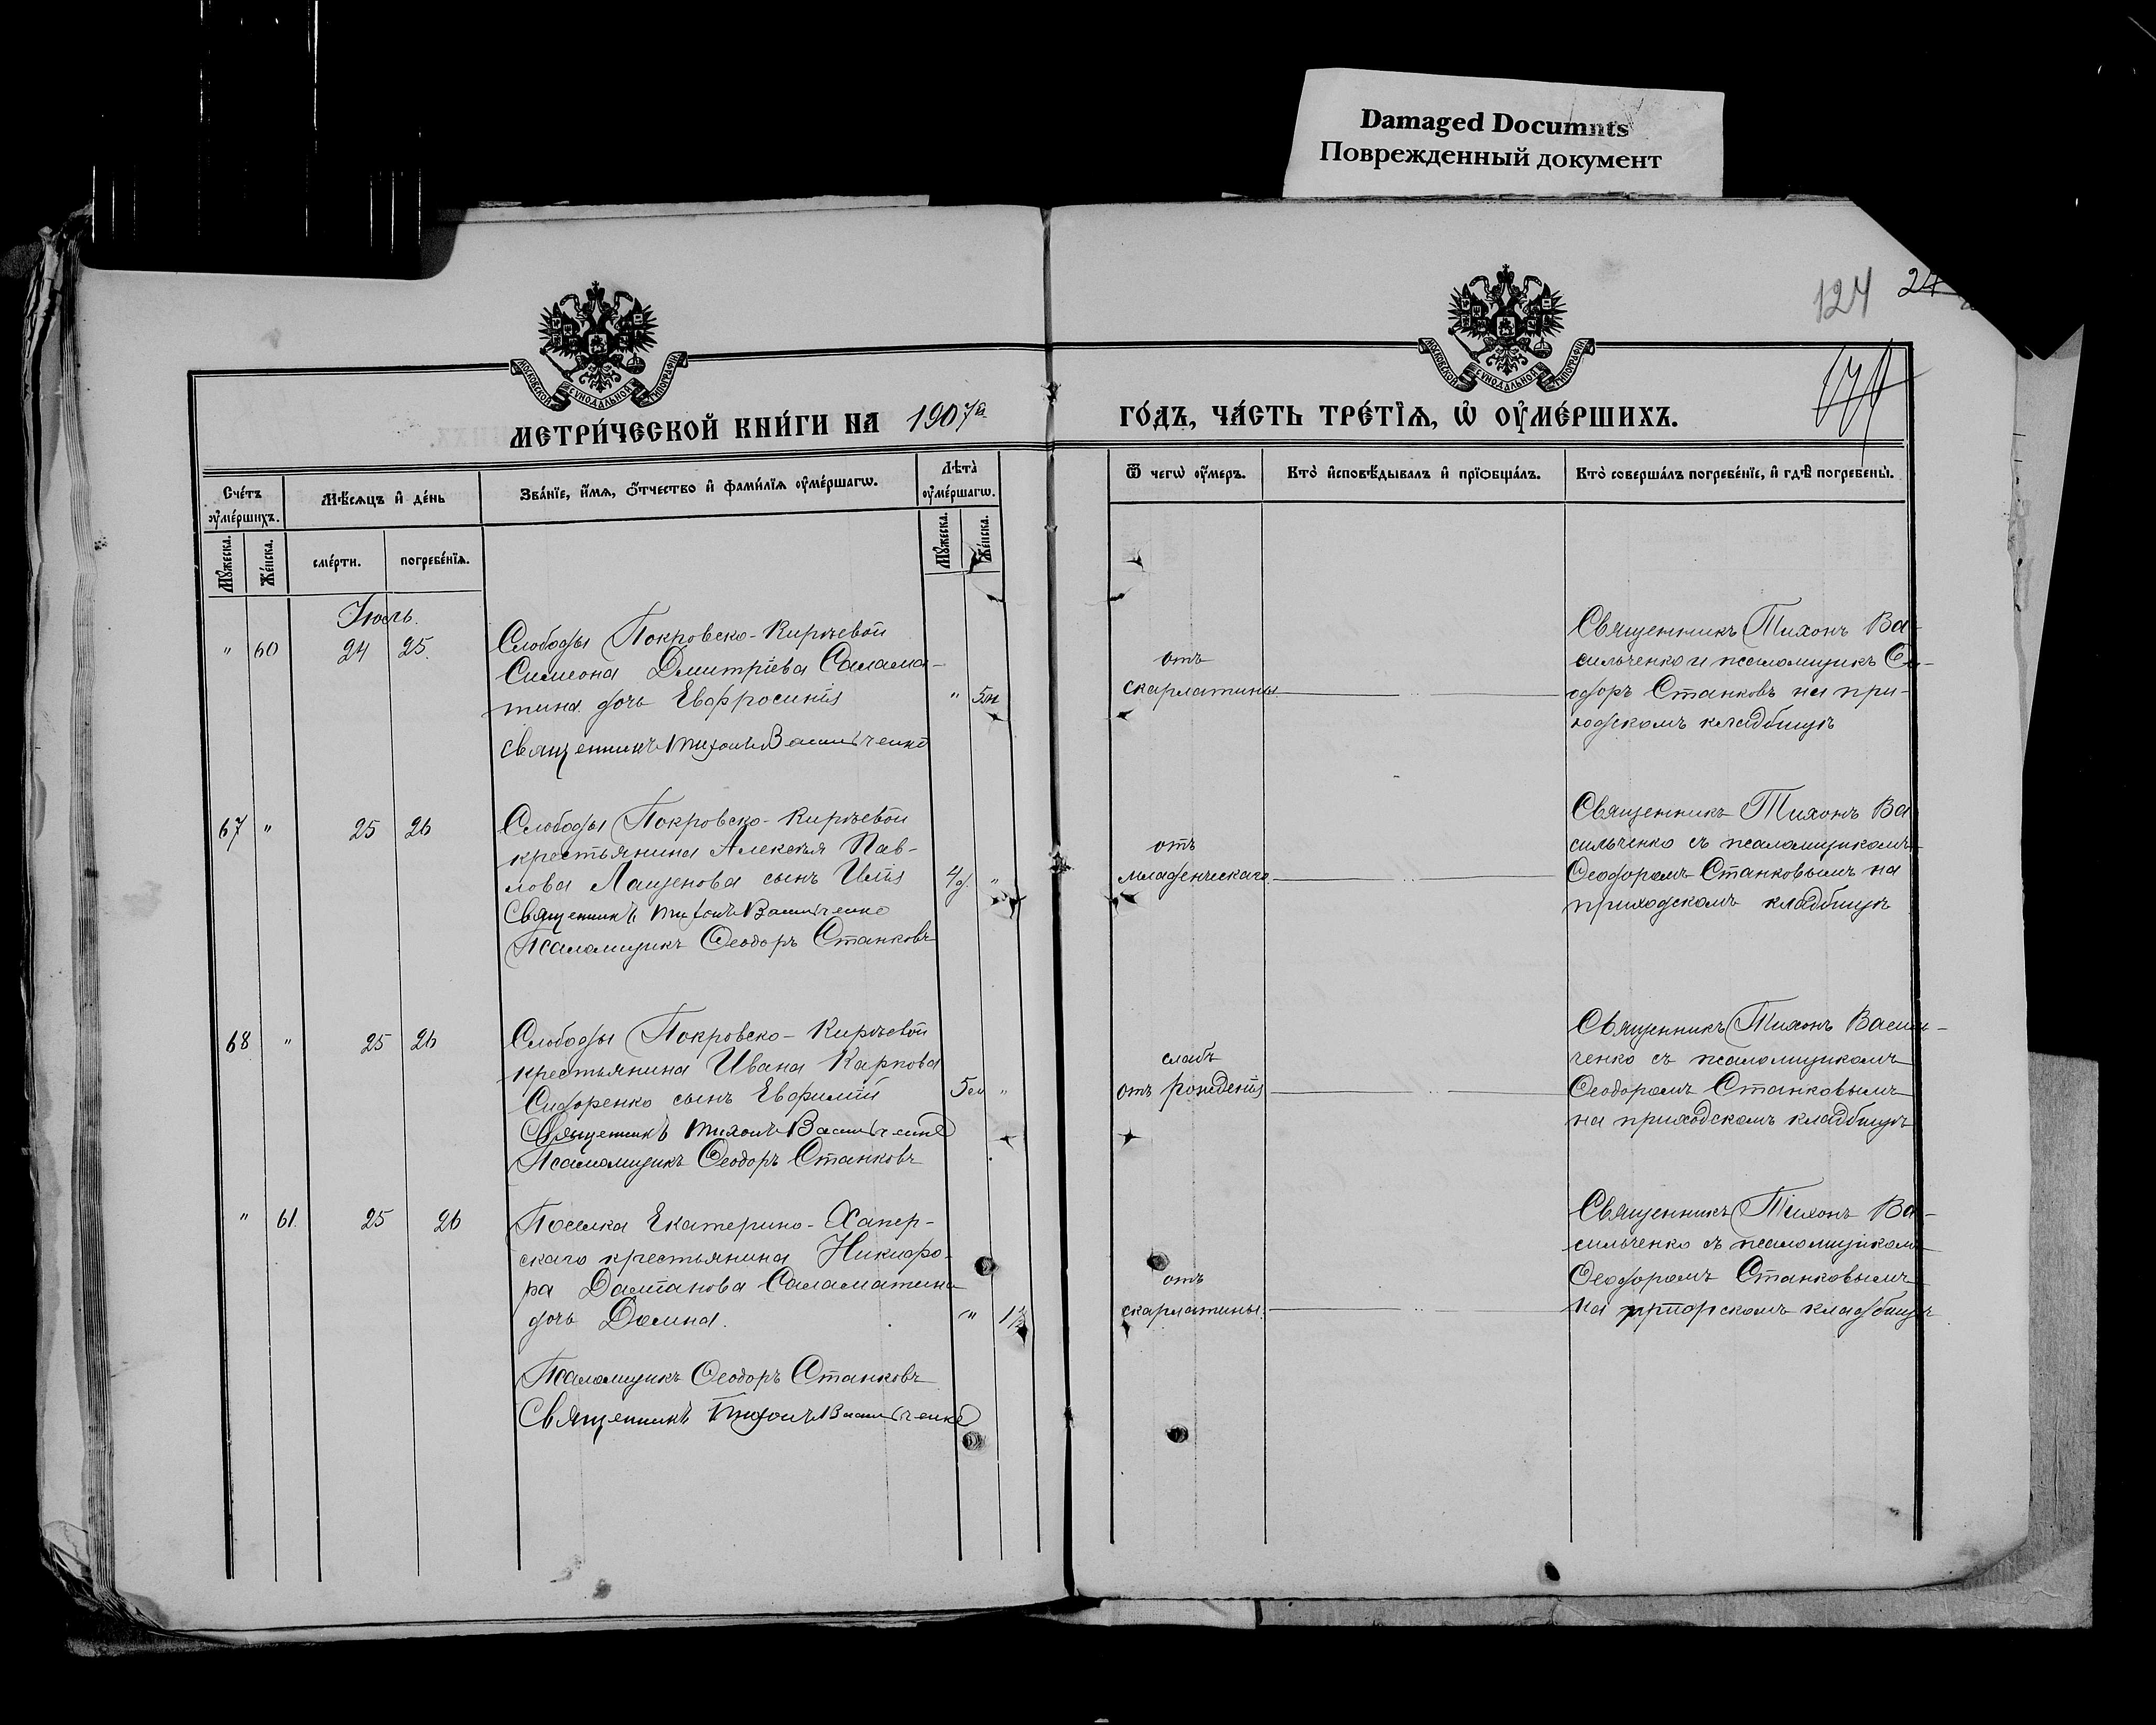 Damaged Documnts
Поврежденный документ
124 24
МОСКОВСКОЙ СУНОДАЛЬНОЙ ТИПОГРАФІИ
МОСКОВСКОЙ СУНОДАЛЬНОЙ ТИПОГРАФІИ
МЕТРИ́ЧЕСКОЙ КНИ́ГИ НА 1907й
ГО́ДЪ, ЧА́СТЬ ТРЕ́ТІѦ, Ѡ҆ ОУ҆МЕ́РШИХЪ.
Сче́тъ оу҆ме́ршихъ.
Мѣ́сѧцъ и҆ де́нь
Зва́нїе, и҆́мѧ, ѻ҆́тчество и҆ фами́лїѧ оу҆ме́ршагѡ.
Лѣта̀ оу҆ме́ршагѡ.
Ѿ чегѡ̀ оу҆́меръ.
Кто̀ и҆сповѣ́дывалъ и҆ прїѡбща́лъ.
Кто̀ соверша́лъ погребе́нїе, и҆ гдѣ̀ погребены̀.
Мꙋ́жеска.
Же́нска.
сме́рти.
погребе́нїѧ.
Мꙋ́жеска.
Же́нска.
Іюль.
" 60 24 25.
Слободы Покровско-Киреевой
Симеона Дмитріева Салама-
тина дочь Евфросинія " 5м
Священникъ Тихонъ Васильченко
отъ
скарлатины
Священникъ Тихонъ Ва-
сильченко и псаломщикъ Ѳе-
одоръ Станковъ на при-
ходскомъ кладбищѣ
67 " 25 26
Слободы Покровско-Киреевой
крестьянина Алексѣя Пав-
лова Лащенова сынъ Илія 4д. "
Священникъ Тихонъ Васильченко
Псаломщикъ Ѳеодоръ Станковъ
отъ
младенческаго
Священникъ Тихонъ Ва
сильченко съ псаломщикомъ
Ѳеодоромъ Станковымъ на
приходскомъ кладбищѣ
68 " 25 26
Слободы Покровско-Киреевой
крестьянина Ивана Карпова
Сидоренко сынъ Евфимій "
Священникъ Тихонъ Васильченко
Псаломщикъ Ѳеодоръ Станковъ
слабъ
отъ рожденія
Священникъ Тихонъ Василь-
ченко съ псаломщикомъ
Ѳеодоромъ Станковымъ
на приходскомъ кладбищѣ
" 61. 25 26
Поселка Екатерино-Хапер-
скаго крестьянина Никифо-
ра Саламатина
дочь Домна. "
Псаломщикъ Ѳеодоръ Станковъ
Священникъ Тихонъ Васильченко
отъ
скарлатины.
Священникъ Тихонъ Ва-
сильченко съ псаломщикомъ
Ѳеодоромъ Станковымъ
на кладбищѣ